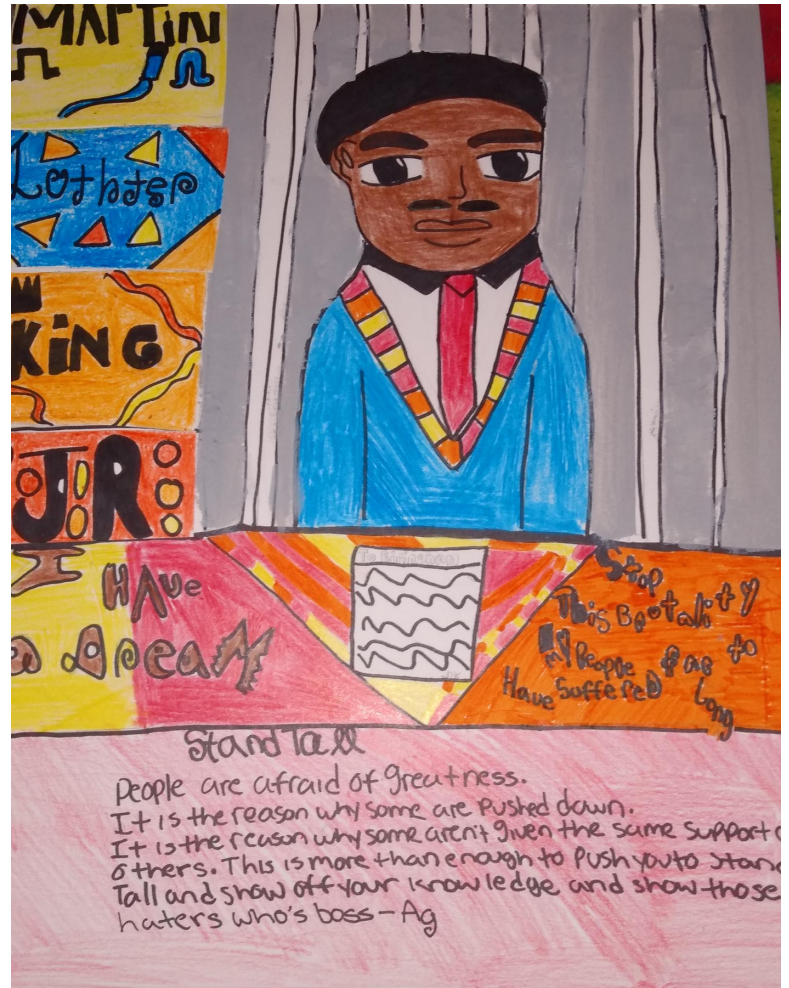 MARTIN
Lothter
KING
JR
I HAVE
a DREAM
Stop
This Brotality
My People
Have Suffered
far to
Long
Stand Tall
People are afraid of greatness.
It is the reason why some are pushed down.
It is the reason why some aren't given the same support
others. This is more than enough to push you to stand
Tall and show off your knowledge and show those
haters who's boss - Ag